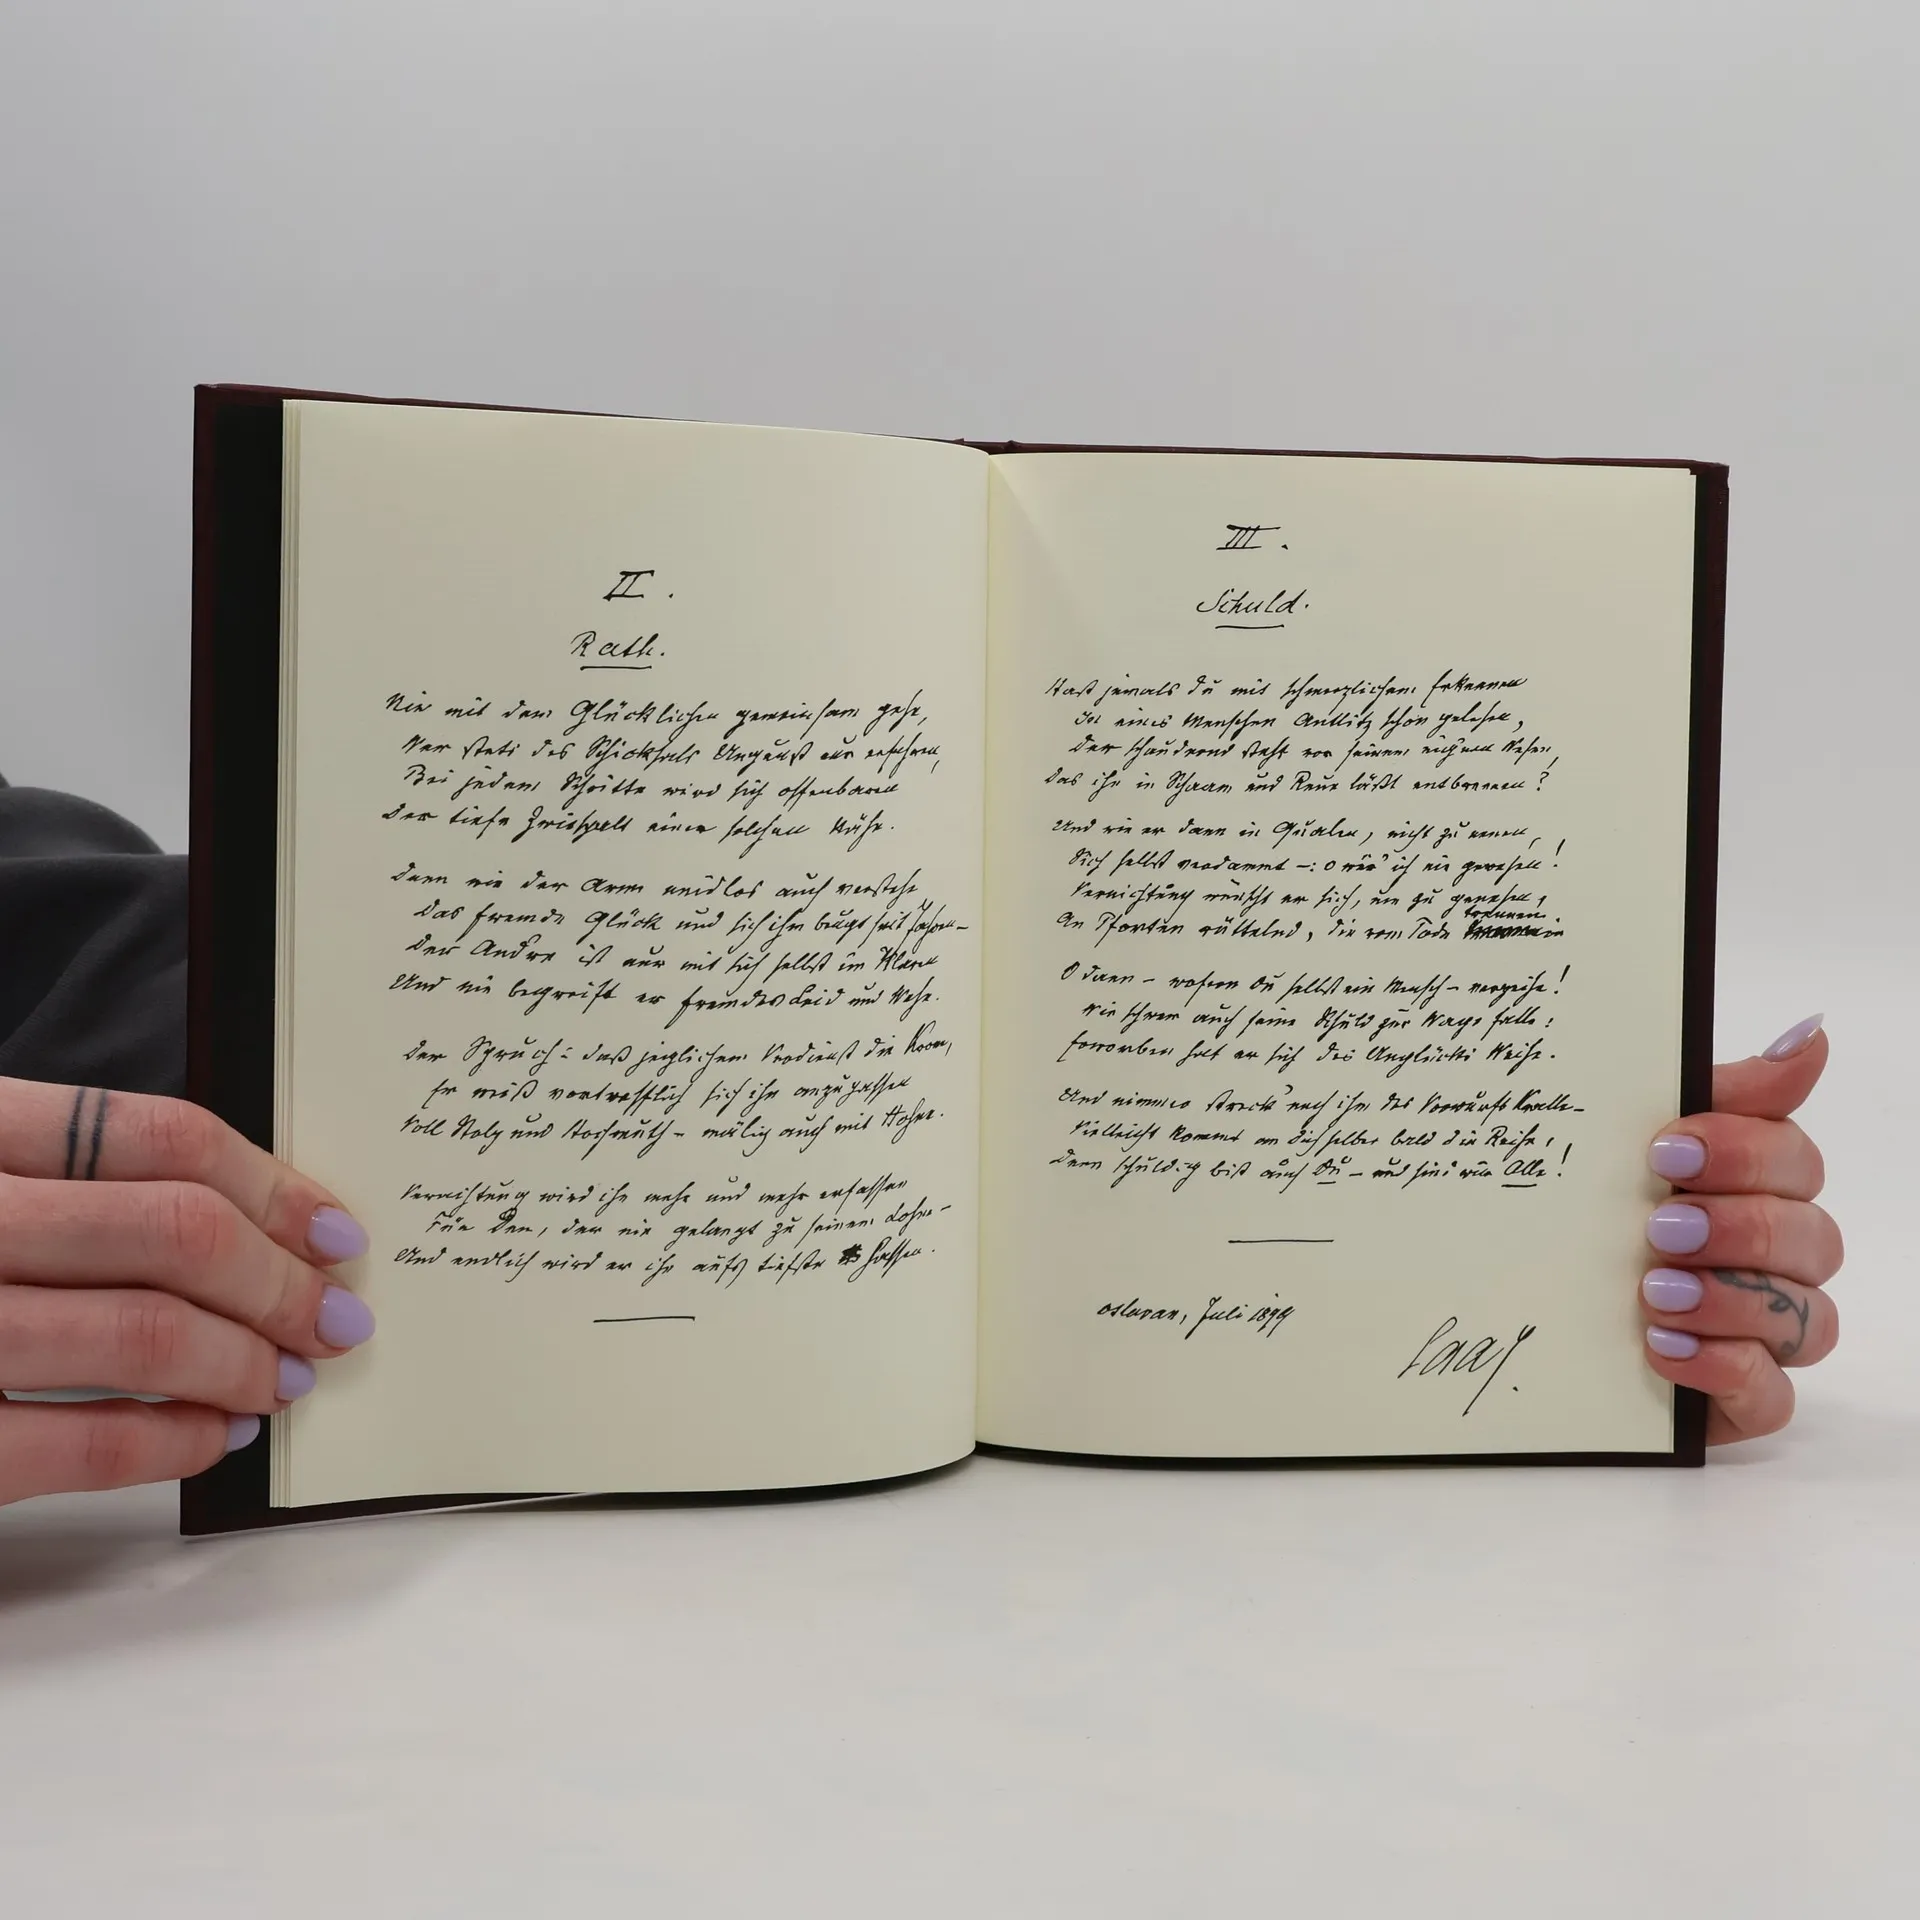 II.
Rath.
Nie mit dem Glücklichen gemeinsam gehe,
Wer stets des Schicksals Ungunst nur erfahren,
Bei jedem Schritte wird sich offenbaren
Der tiefe Zwiespalt einer solchen Nähe.
Denn wie der Arme neidlos auch verstehe
Das fremde Glück und sich ihm beugt seit Jahren –
Der Andre ist nur mit sich selbst im Klaren
Und nie begreift er fremdes Leid und Wehe.
Der Spruch: daß jeglichem Verdienst die Kron,
Er weiß vortrefflich sich ihn anzupassen
Voll Stolz und Hochmuth – mälig auch mit Hohne.
Verachtung wird ihn mehr und mehr erfassen
Für Den, der nie gelangt zu seinem Lohne –
Und endlich wird er ihn aufs tiefste hassen.
III.
Schuld.
Hast jemals du mit schmerzlichem Erkennen
In eines Menschen Antlitz schon gelesen,
Der schaudernd steht vor seinem eig'nen Wesen,
Das ihn in Schaam und Reue läßt entbrennen?
Und wie er dann in Qualen, nicht zu nennen,
Sich selbst verdammt –: o wär' ich nie gewesen!
Vernichtung wünscht er sich, um zu genesen,
trennen.
An Pforten rüttelnd, die vom Tode
O dann – wofern Du selbst ein Mensch – verzeihe!
Wie schwer auch seine Schuld zur Wage falle:
Erworben hat er sich des Unglücks Weihe.
Und nimmer streck' nach ihm des Vorwurfs Kralle –
Vielleicht kommt an Dich selber bald die Reihe,
Denn schuldig bist auch Du – und sind wir Alle!
Oslavan, Juli 1899
Saar.